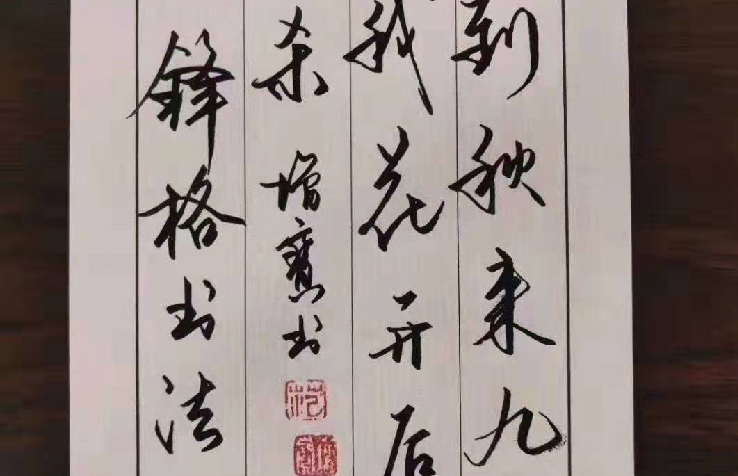 到秋来九
我花开后
杀 增宝书
锋格书法